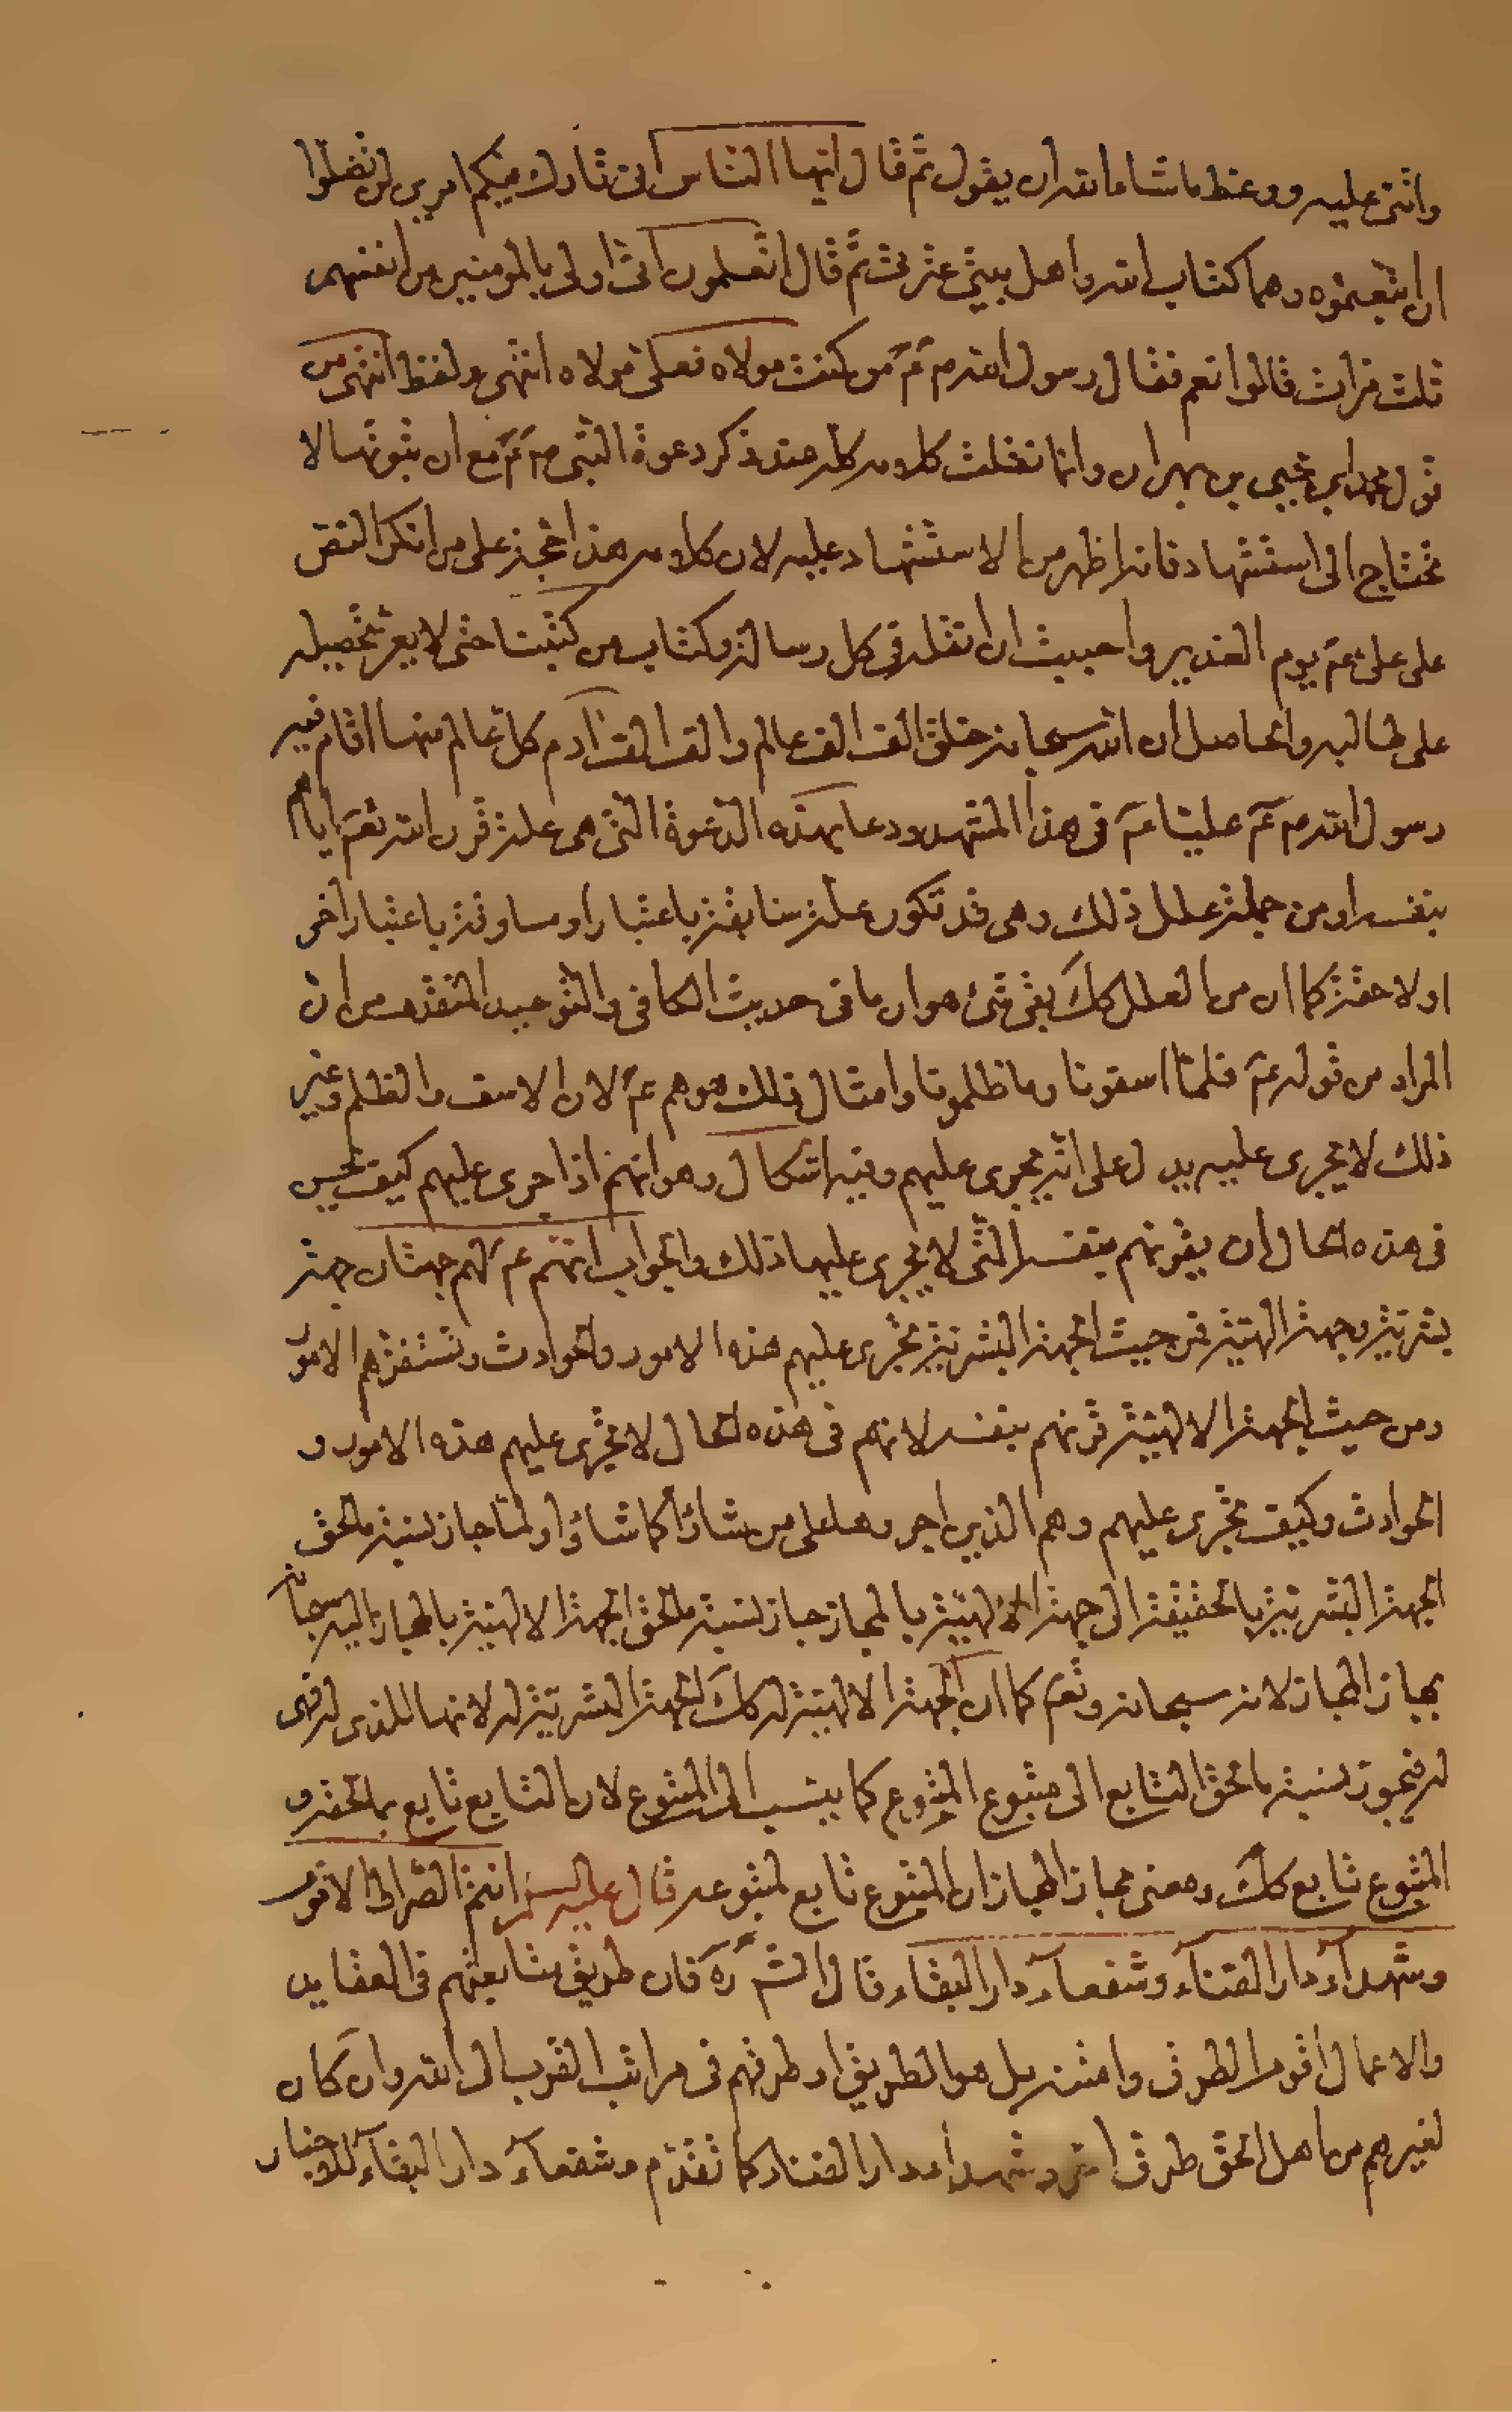 واثنى عليه ووعظ ما شاء الله ان يقول ثم قال ايها الناس انى تارك فيكم امرين لن تضلوا
ان اتبعتموه وهما كتاب الله واهل بيتى عترتى ثم قال اتعلمون انى اولى بالمومنين من انفسهم
ثلث مرات قالوا نعم فقال رسول الله ص ع من كنت مولاه فعلى مولاه انتهى ولفظ انتهى من
قول محمد ابن يحيى بن مهران وانما نقلت كلامه كله عند ذكر دعوة النبى ص ع مع ان ثبوتها لا
تحتاج الى استشهاد فانه اظهر من الاستشهاد عليه لان كلامه هذا حجة على من انكر النص
على على ع يوم الغدير واحببت ان انقله فى كل رسالة وكتاب من كتبنا حتى لا يعز تحصيله
على طالبه والحاصل ان الله سبحانه خلق الف الف عالم والف الف ادم كل عالم منها اقام فيه
رسول الله ص ع عليا ع فى هذا المشهد ودعا بهذه الدعوة التى هى علة قرن الله تع اياهم
بنفسه او من جملة علل ذلك وهى قد تكون علة سابقة باعتبار او مساوقة باعتبار اخر
او لاحقة كما ان من العلل كك بقى شئ هو ان ما فى حديث الكافى والتوحيد المتقدم من ان
المراد من قوله تع فلما اسفونا وما ظلمونا وامثال ذلك هو هم ع لان الاسف والظلم وغير
ذلك لا يجرى عليه يدل على انه يجرى عليهم وفيه اشكال وهو انهم اذا جرى عليهم كيف يحسن
فى هذه الحال ان يقرنهم بنفسه التى لا يجرى عليها ذلك والجواب انهم ع لهم جهتان جهة
بشرية وجهة الهية فمن حيث الجهة البشرية تجرى عليهم هذه الامور والحوادث وتستفزهم الامور
ومن حيث الجهة الالهية قرنهم بنفسه لانهم فى هذه الحال لا تجرى عليهم هذه الامور و
الحوادث وكيف تجرى عليهم وهم الذين اجروها على من شاؤا كما شاؤا ولما جاز نسبة ما لحق
الجهة البشرية بالحقيقة الى جهة الالهية بالمجاز جاز نسبة ما لحق الجهة الالهية بالمجاز اليه سبحانه
بمجاز المجاز لانه سبحانه وتع كما ان الجهة الالهية له كك الجهة البشرية له لانها للذى له فهى
له فيجوز نسبة ما لحق التابع الى متبوع المتبوع كما ينسب الى المتبوع لان التابع تابع بما لحقه و
المتبوع تابع كك ومعنى مجاز المجاز ان المتبوع تابع لمتبوعه قال عليه السلام انتم الصراط الاقوم
وشهدآء دار الفنآء وشفعآء دار البقاء قال الشه ره فان طريق متابعتهم فى العقايد
والاعمال اقوم الطرق وامتنه بل هو الطريق او طرقهم فى مراتب القرب الى الله وان كان
لغيرهم من اهل الحق طرق وشهدآء دار الفناء كما تقدم وشفعآء دار البقآء للاخبار